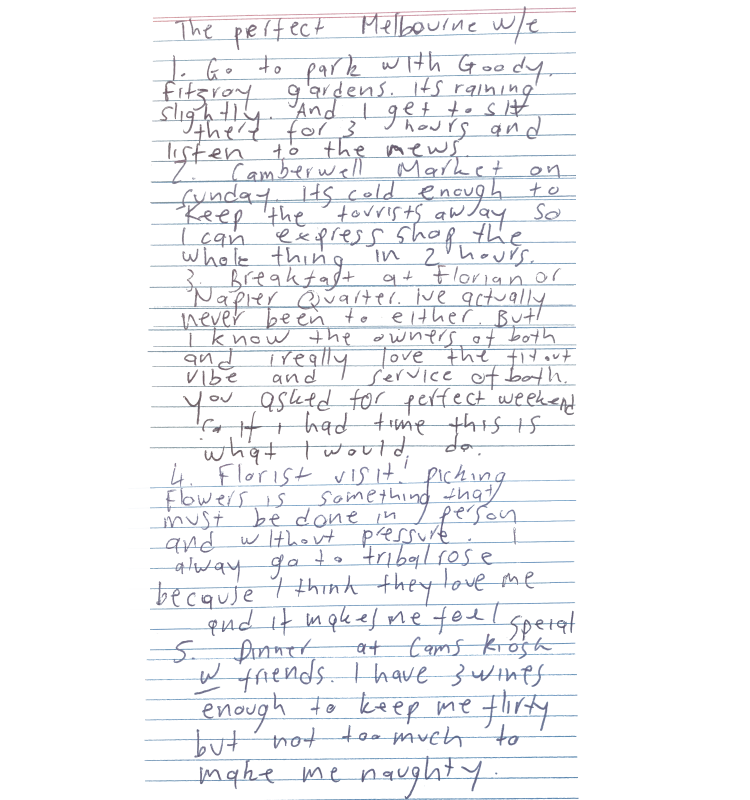 The perfect Melbourne w/e
1. Go to park with Goody.
Fitzroy gardens. its raining
slightly. And I get to sit
there for 3 hours and
listen to the news.
2. Camberwell Market on
sunday. its cold enough to
keep the tourists away so
I can express shop the
whole thing in 2 hours.
3. Breakfast at Florian or
Napier Quarter. ive actually
never been to either. But
I know the owners of both
and i really love the fitout
vibe and service of both.
you asked for perfect weekend
so if i had time this is
what I would do.
4. Florist visit! picking
flowers is something that
must be done in person
and without pressure. I
alway go to tribal rose
because I think they love me
and it makes me feel special
5. Dinner at Cams Kiosk
w friends. I have 3 wines
enough to keep me flirty
but not too much to
make me naughty.